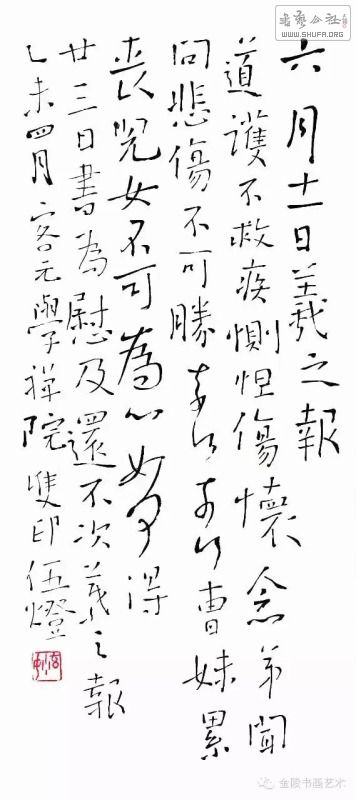 六月十一日羲之報
道護不救疾惻怛傷懷念弟聞
問悲傷不可勝奈何奈何曹妹累
喪兒女不可為心如何得
廿三日書為慰及還不次羲之報
乙未四月客元學禪院雙印伍燈
书艺公社
WWW.SHUFA.ORG
金陵书画艺术